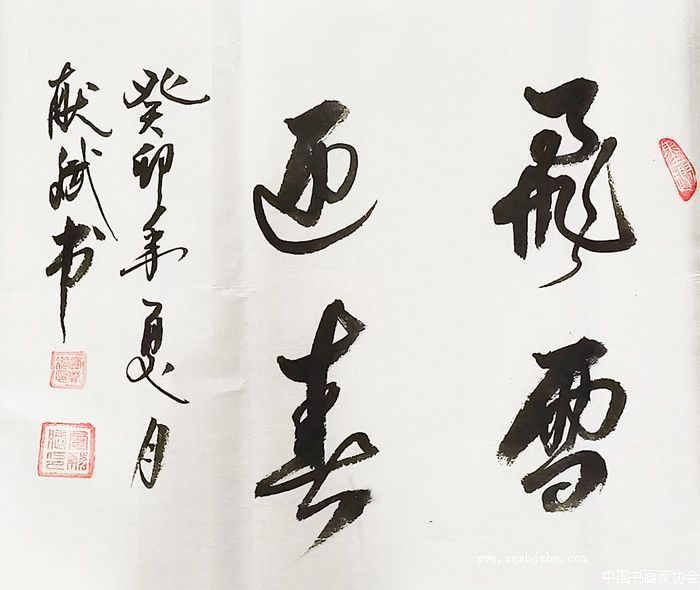 飛雪
迎春
癸卯年夏月
献斌书
www.zgshjxhw.com
中国书画家协会